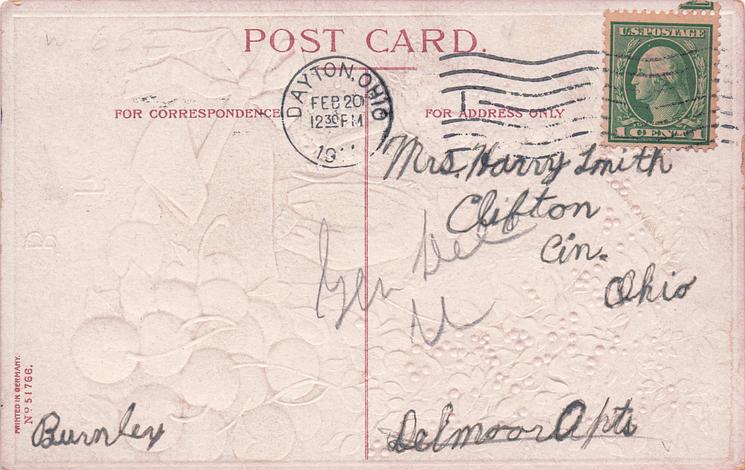 POST CARD.
U.S. POSTAGE
1 CENT 1
DAYTON, OHIO
FEB 20
12 30 PM
19
FOR CORRESPONDENCE
FOR ADDRESS ONLY
Mrs. Harry Smith
Clifton
Cin.
Ohio
Gen Del
Burnley
Delmoor Apts
PRINTED IN GERMANY.
No 51766.